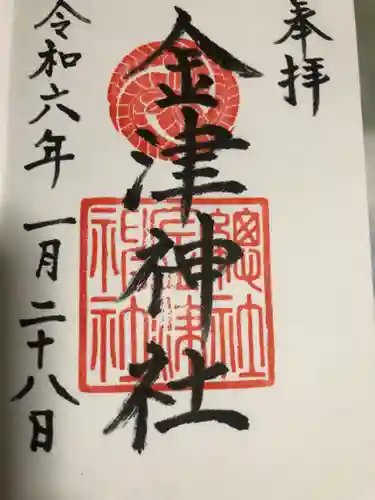 奉拝
金津神社
令和六年 一月二十八日
總社
金津
神社